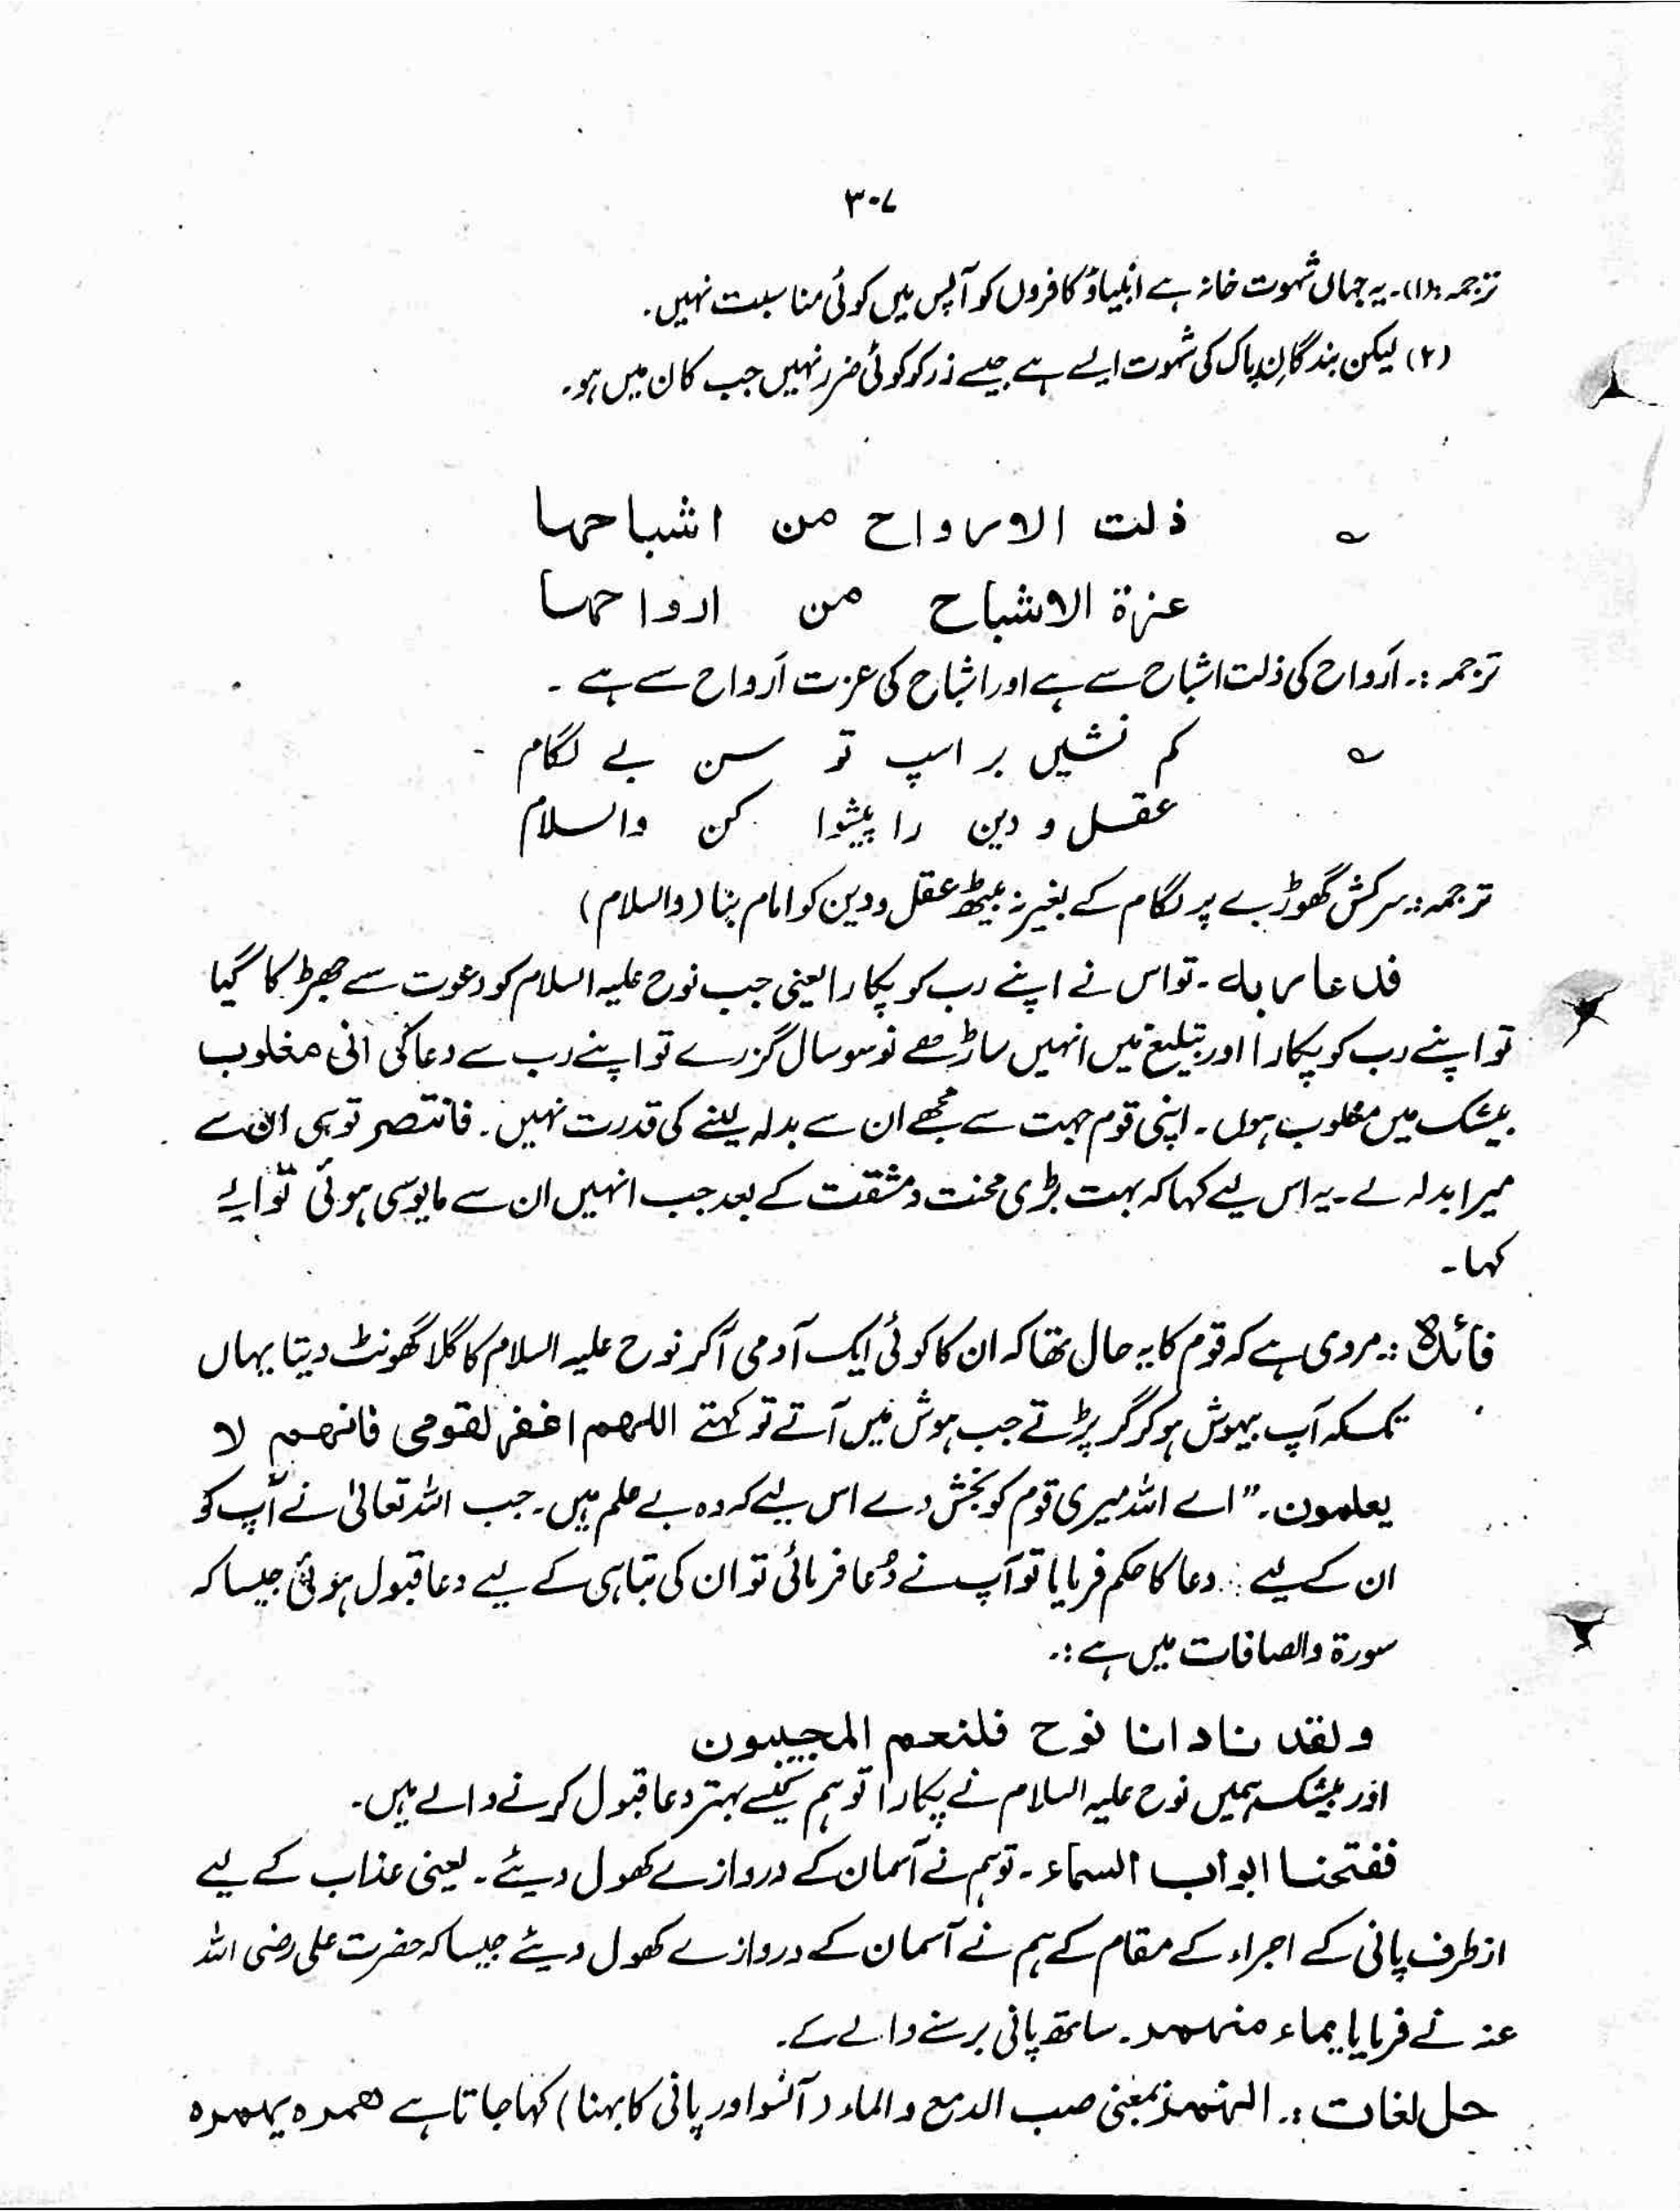 ۳۰۷
ترجمہ:(۱)۔ یہ جہاں شہوت خانہ ہے انبیاؤ کافروں کو آپس میں کوئی مناسبت نہیں۔
(۲) لیکن بندگانِ پاک کی شہوت ایسے ہے جیسے زر کو کوئی ضرر نہیں جب کان میں ہو۔
ذلت الارواح من اشباحہا
عزۃ الاشباح من ارواحہا
ترجمہ:۔ اَرواح کی ذلت اشباح سے ہے اور اشباح کی عزت اَرواح سے ہے ۔
کم نشیں بر اسپ تو سن بے لگام
عقل و دین را پیشوا کن والسلام
ترجمہ:۔ سرکش گھوڑے پر لگام کے بغیر نہ بیٹھ عقل و دین کو امام بنا (والسلام)
فدعا ربہ ۔ تو اس نے اپنے رب کو پکارا یعنی جب نوح علیہ السلام کو دعوت سے جھڑکا گیا
تو اپنے رب کو پکارا اور تبلیغ میں انہیں ساڑھے نو سو سال گزرے تو اپنے رب سے دعا کی انی مغلوب
بیشک میں مغلوب ہوں ۔ اپنی قوم جہت سے مجھے ان سے بدلہ لینے کی قدرت نہیں۔ فانتصر تو ہی ان سے
میرا بدلہ لے ۔ یہ اس لیے کہا کہ بہت بڑی محنت و مشقت کے بعد جب انہیں ان سے مایوسی ہوئی تو ایسے
کہا ۔
فائدہ :۔ مروی ہے کہ قوم کا یہ حال تھا کہ ان کا کوئی ایک آدمی آکر نوح علیہ السلام کا گلا گھونٹ دیتا یہاں
تک کہ آپ بیہوش ہو کر گر پڑتے جب ہوش میں آتے تو کہتے اللہم اغفر لقومی فانہم لا
یعلمون۔" اے اللہ میری قوم کو بخش دے اس لیے کہ وہ بے علم ہیں ۔ جب اللہ تعالیٰ نے آپ کو
ان کے لیے دعا کا حکم فرمایا تو آپ نے دُعا فرمائی تو ان کی تباہی کے لیے دعا قبول ہوئی جیسا کہ
سورۃ والصافات میں ہے :۔
ولقد نادانا نوح فلنعم المجیبون
اور بیشک ہمیں نوح علیہ السلام نے پکارا تو ہم کیسے بہتر دعا قبول کرنے والے ہیں۔
ففتحنا ابواب السماء ۔ تو ہم نے آسمان کے دروازے کھول دیئے ۔ یعنی عذاب کے لیے
از طرف پانی کے اجراء کے مقام کے ہم نے آسمان کے دروازے کھول دیئے جیسا کہ حضرت علی رضی اللہ
عنہ نے فرمایا بماء منہمر ۔ ساتھ پانی برسنے والے کے۔
حل لغات :۔ بمعنی صب الدمع والماء (آنسو اور پانی کا بہنا) کہا جاتا ہے ھمرہ یہمرہ